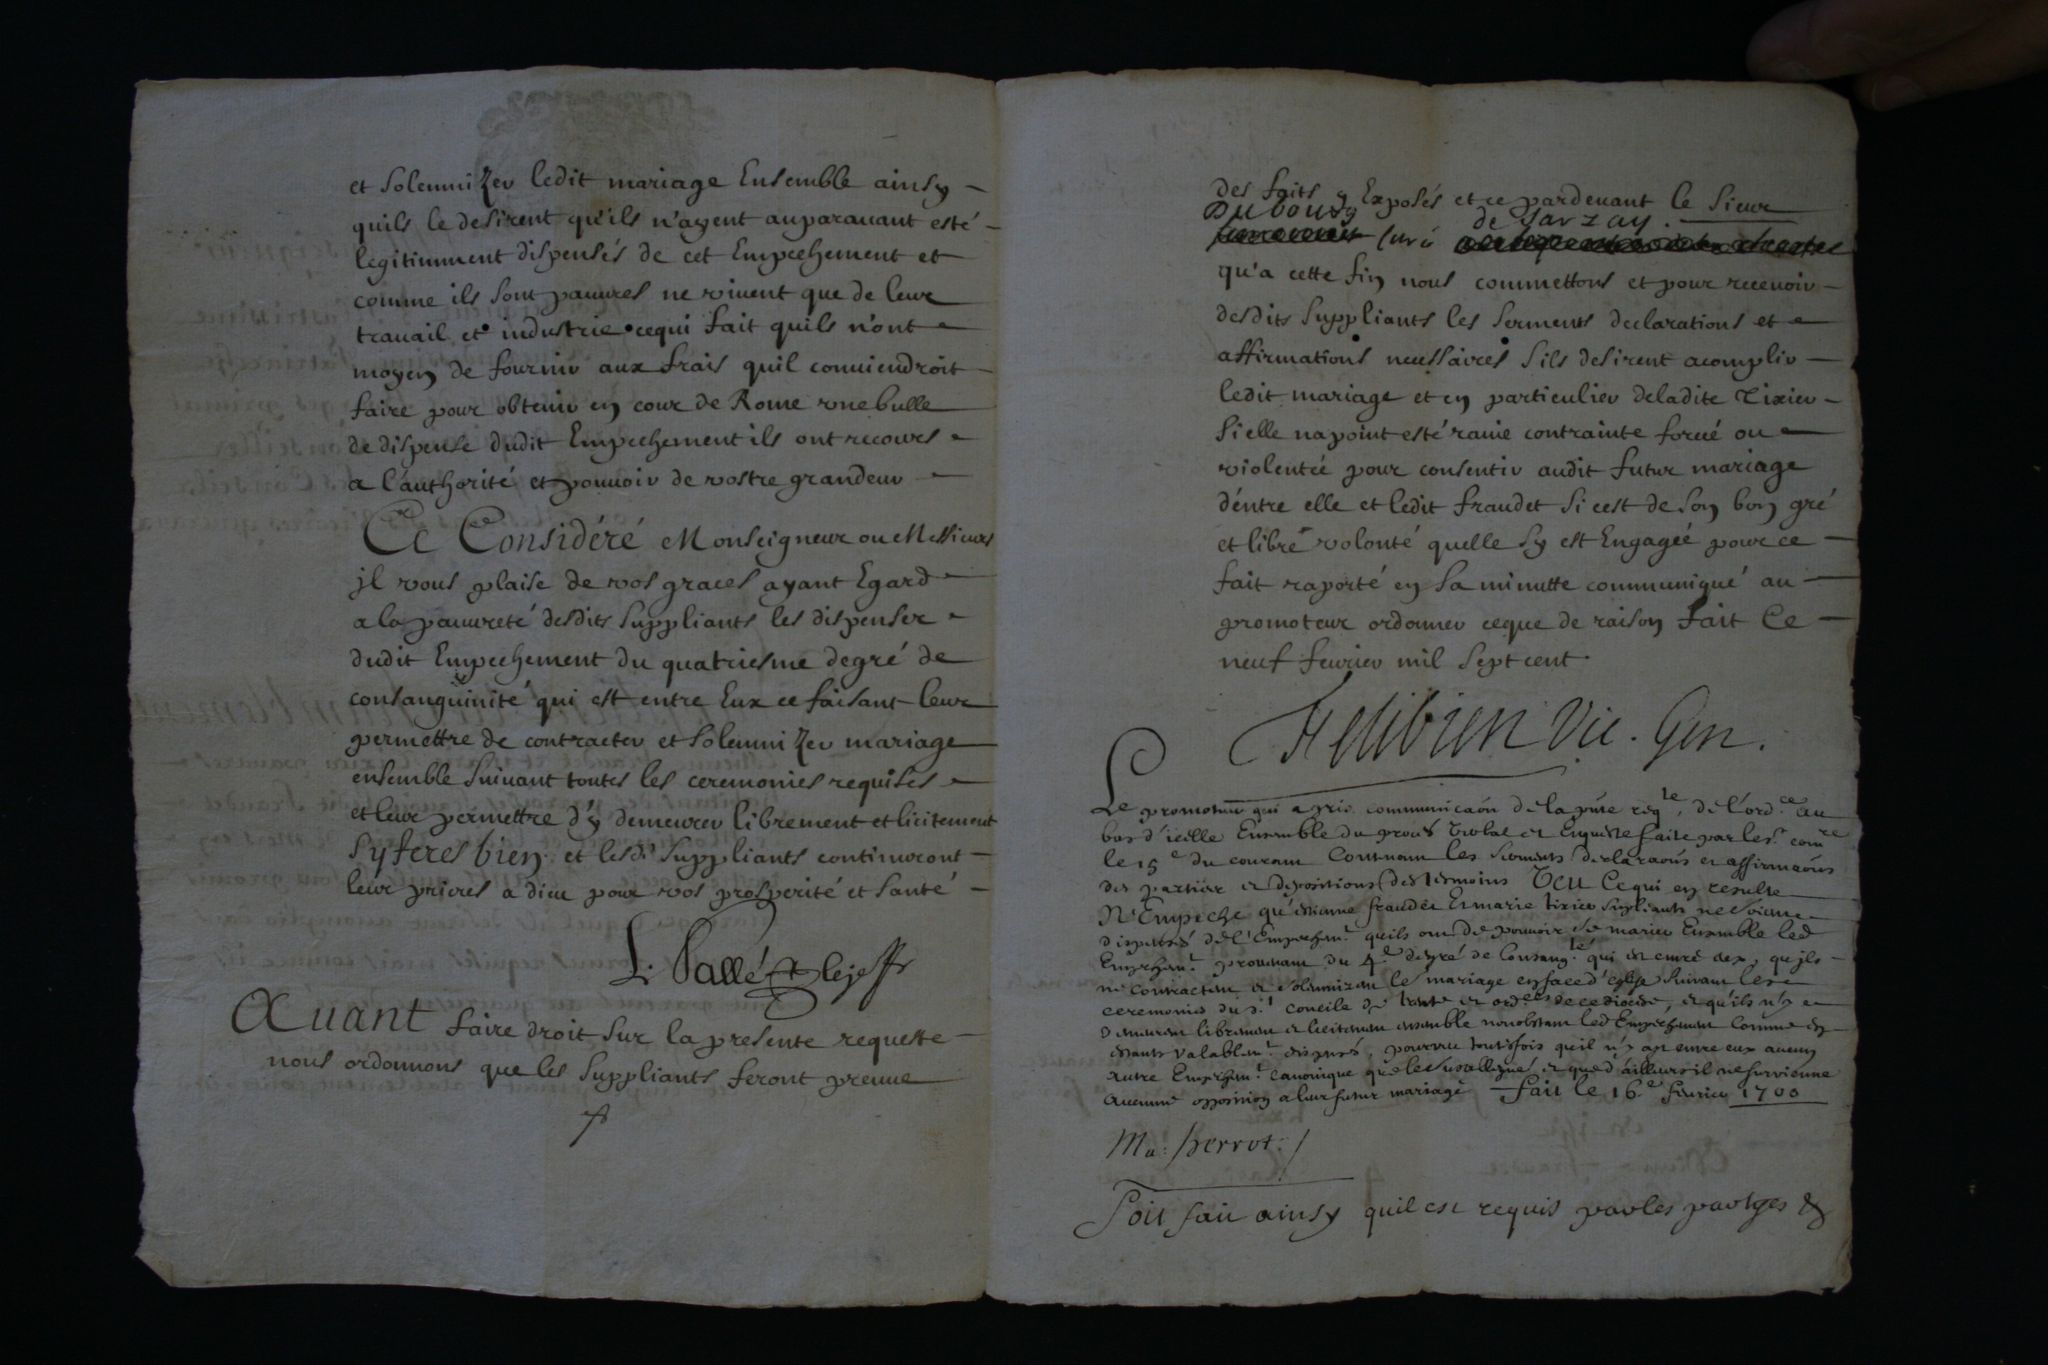 et Solennizer ledit mariage Ensemble ainsy
quils le desirent qu'ils n'ayent auparauant esté
legitimment dispensés de cet Empechement et
comme ils sont pauures ne viuent que de leur
trauail et industrie cequi fait quils n'ont
moyen de fournir aux frais quil conuiendroit
faire pour obtenir en cour de Rome vne bulle
de dispense dudit Empechement ils ont recours
a l'authorité et pouuoir de vostre grandeur
Ce Considéré Monseigneur ou Messieurs
il vous plaise de vos graces ayant Egard
a la pauureté desdits Suppliants les dispenser
dudit Empechement du quatriesme degré de
consanguinité qui est entre Eux ce faisant leur
permettre de contracter et Solennizer mariage
ensemble Suiuant toutes les ceremonies requises
et leur permettre d'y demeurer librement et licitement
Sy feres bien et lesd. Suppliants continuront
leur prieres a dieu pour vos prosperité et Santé
L. Pallé
Auant faire droit Sur la presente requeste
nous ordonnons que les Suppliants feront preuue
des faits y Exposés et ce pardeuant le Sieur
Dubourg de Sarzay
Curé
qu'a cette fin nous commettons et pour receuoir
desdits Suppliants les Serments declarations et
affirmations necessaires Sils desirent acomplir
ledit mariage et en particulier deladite Tixier
Si elle na point esté rauie contrainte forcé ou
violentée pour consentir audit futur mariage
d'entre elle et ledit fraudet Si cest de Son bon gré
et libre volonté quelle Sy est Engagée pour ce
fait raporté en Sa minutte communiqué au
promoteur ordonner ceque de raison Fait Ce
neuf feurier mil Sept cent
Felibien Vic. Gen.
Le promoteur qui a pris communicaōn de la pnte reqte, de l'ordce au
bas d'icelle Ensemble du proces verbal et Enqueste faite par le sr comre
le 15e du courant Contenant les Serments declaraōns et affirmaōns
des parties et depositions des temoins Veu Ce qui en resulte
N'Empeche qu'etienne fraudet et marie tixier supliants ne Soient
dispensés de l'Empechemt quils ont de pouuoir se marier Ensemble led
Empechemt prouenant du 4e degré de Consangté qui est entre eux, quils
ne Contractent et Solemnizent le mariage en face d'eglise Suiuant les
ceremonies du st concile de trente et ordces de ce diocese, et qu'ils n'y
demeurent librement et licitement ensemble nonobstant led Empechement Comme en
estants valablemt dispensés, pourvu toutefois qu'il n'y ayt entre eux aucun
autre Empechemt Canonique que le Susallegué et que d'ailleurs il ne survienne
aucune opposition a leur futur mariage Fait le 16e feurier 1700
Ma: perrot
Soit fait ainsy quil est requis par les partyes &